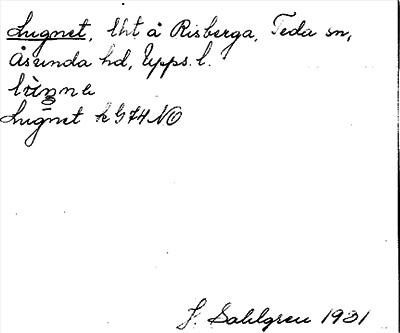 Lugnet, lht å Risberga, Teda sn,
Åsunda hd, Upps. l.
Lugnet k G74 NO
J. Sahlgren 1931